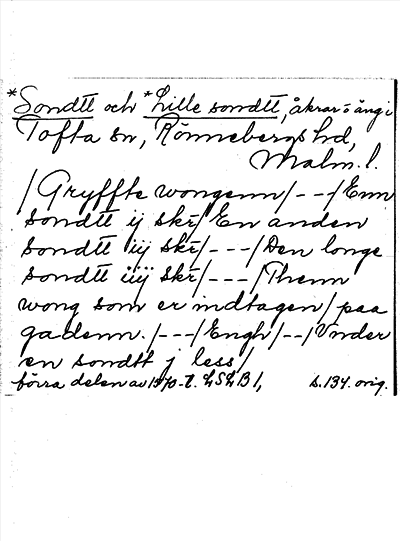 *Sondtt och *Lille sondtt, åkrar o äng i
Tofta sn, Rönnebergs hd,
Malm. l.
/Gryffte wongenn/---/Enn
sondtt ij skr̄/ En anden
sondtt iij skr̄/---/Den longe
sondtt iiij skr̄/---/Thenn
wong som er indtagen/ paa
gadenn./---/Engh/--/Vnder
en sondtt j less/
förra delen av 1570-t. LSLB 1, s. 134. orig.